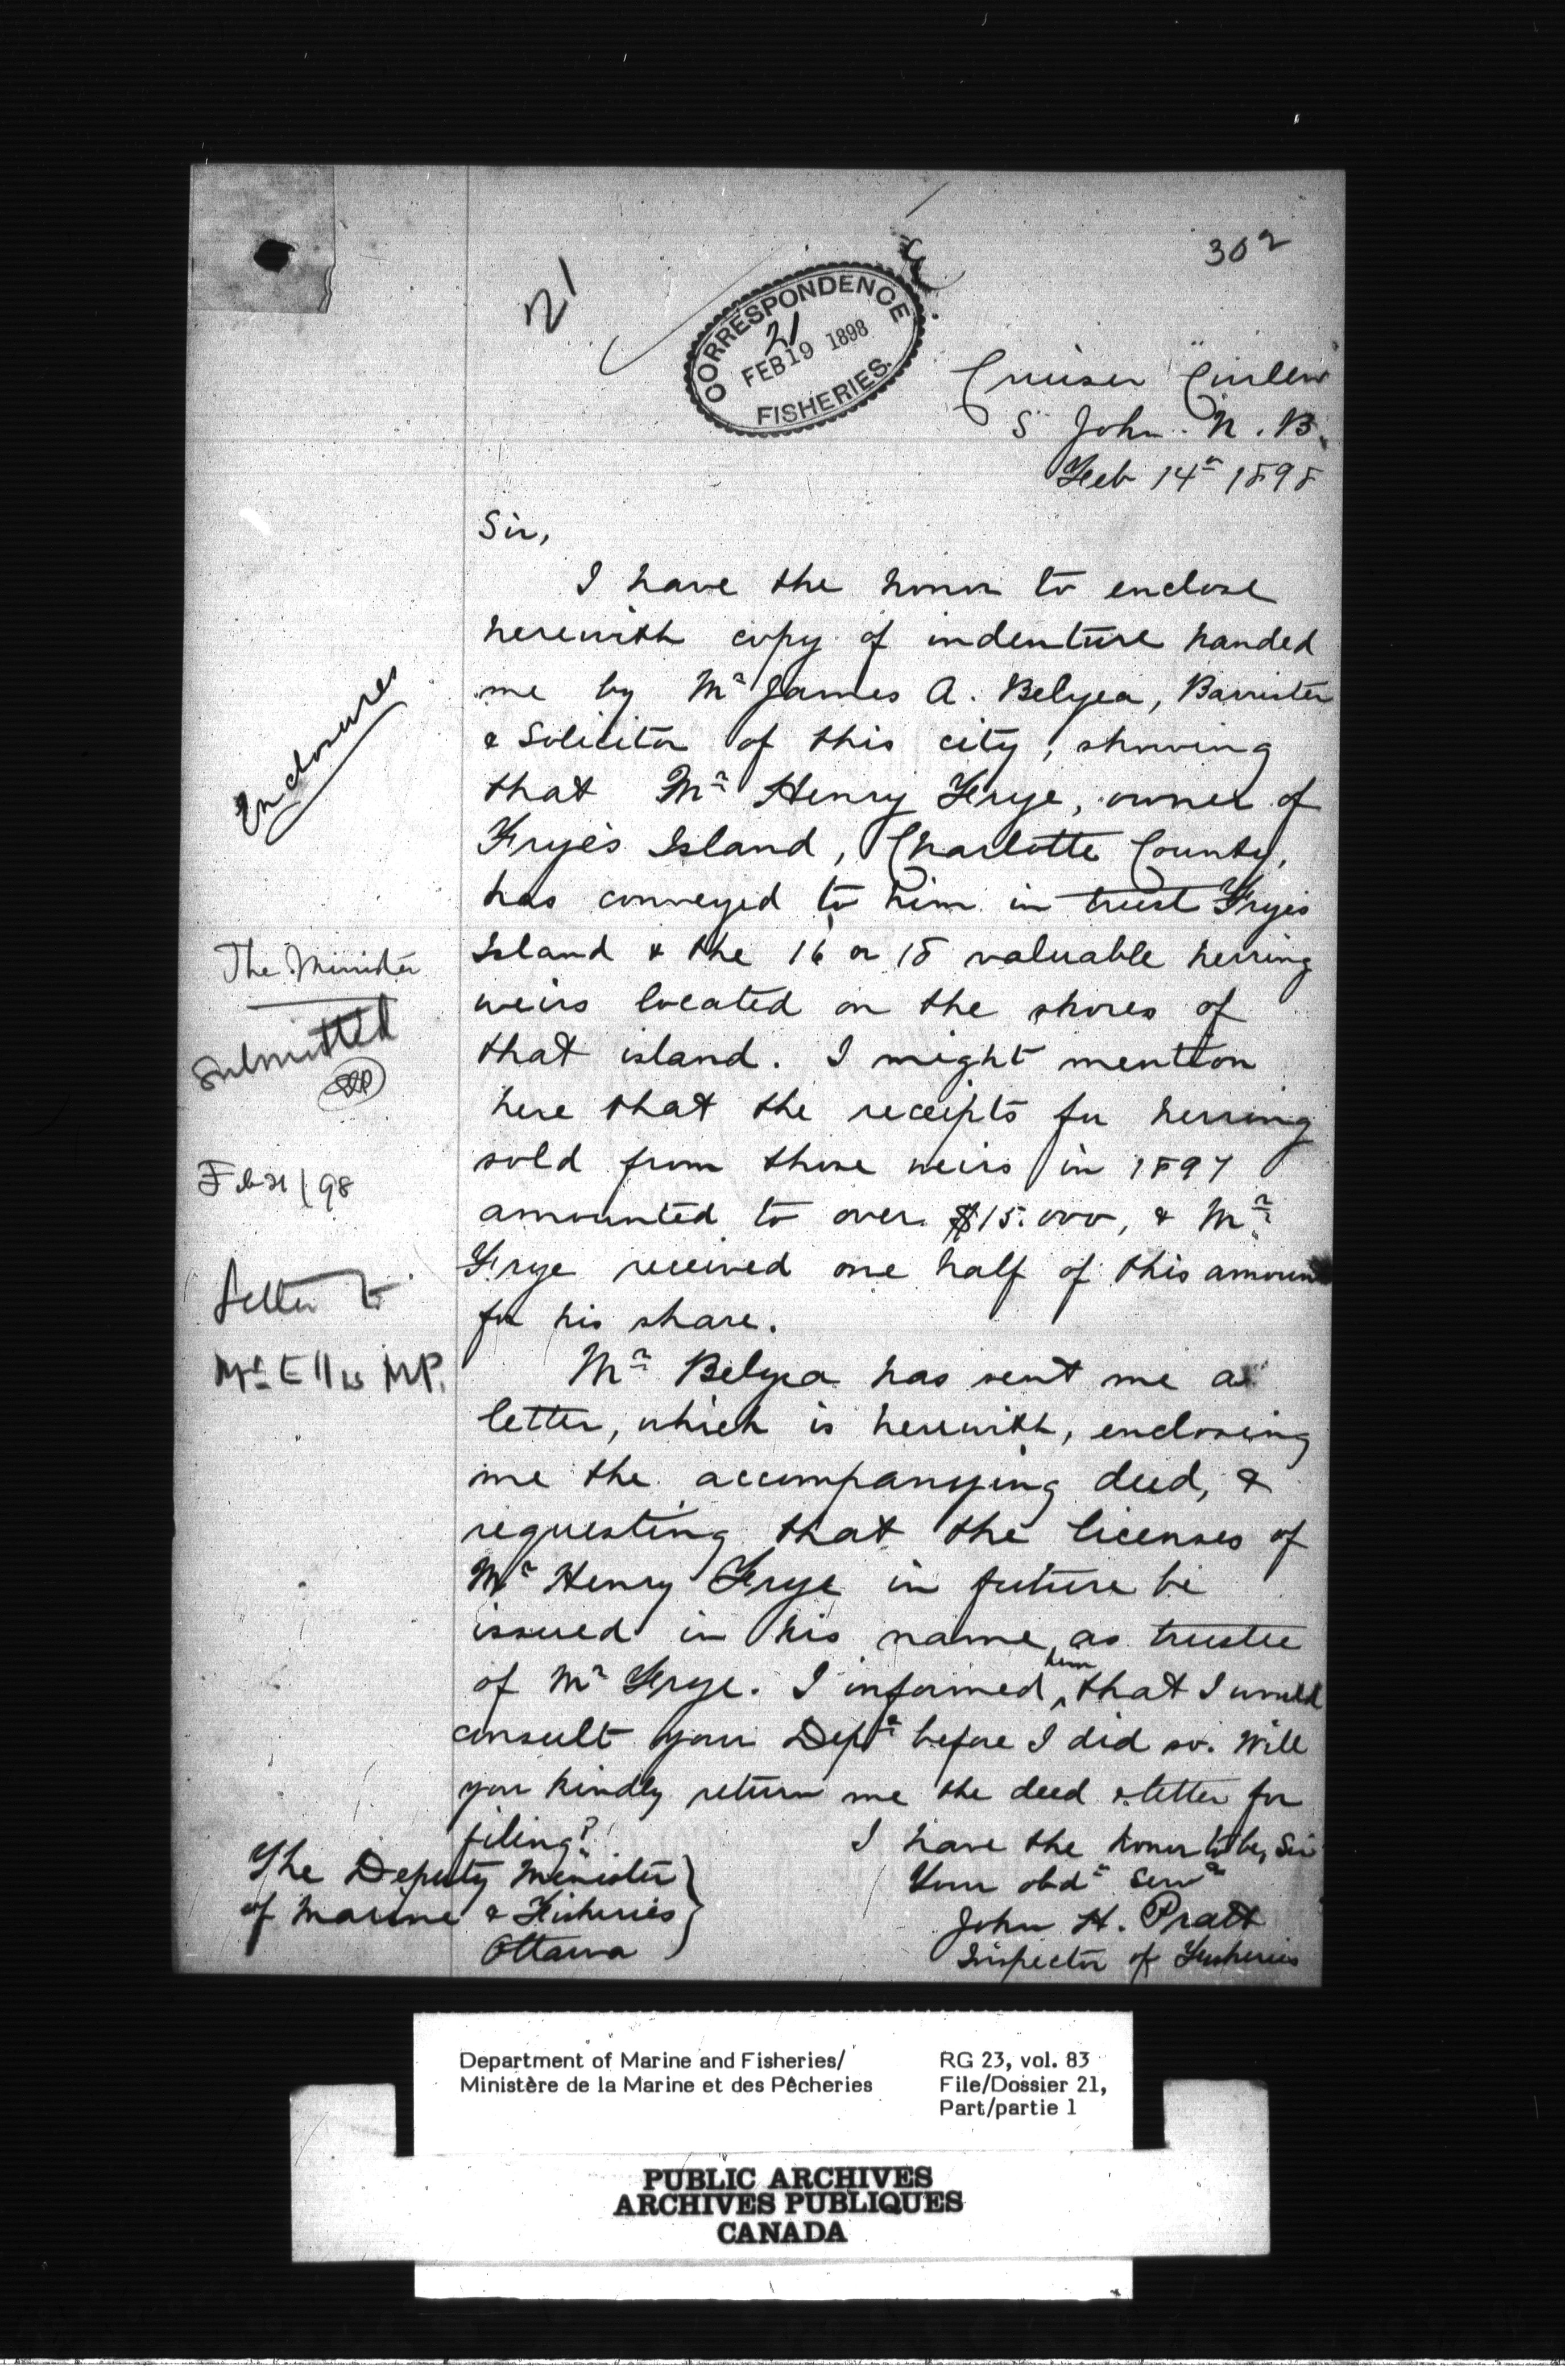 302
21
CORRESPONDENCE
21
FEB 19 1898
FISHERIES.
Cruiser "Curlew"
St John. N. B.
Feb 14th 1898
Sir,
I have the honor to enclose
herewith copy of indenture handed
me by Mr James A. Belyea, Barrister
& Solicitor of this city, showing
that Mr Henry Frye, owner of
Frye's Island, Charlotte County,
has conveyed to him in trust Fryes
Island & the 16 or 18 valuable herring
weirs located on the shores of
that island. I might mention
here that the receipts for herring
sold from those weirs in 1897
amounted to over $15.000, & Mr
Frye received one half of this amount
for his share.
Mr Belyea has sent me a
letter, which is herewith, enclosing
me the accompanying deed, &
requesting that the licenses of
Mr Henry Frye in future be
issued in his name, as trustee
of Mr Frye. I informed him that I would
consult your Dept before I did so. Will
you kindly return me the deed & letter for
filing?
I have the honor to be, Sir
Your obdt Servt
John H. Pratt
Inspector of Fisheries
The Deputy Minister
of Marine & Fisheries
Ottawa
Enclosures
The Minister
Submitted
Feb 21/98
Letter to
Mr Ellis MP.
Department of Marine and Fisheries/
Ministère de la Marine et des Pêcheries
RG 23, vol. 83
File/Dossier 21,
Part/partie 1
PUBLIC ARCHIVES
ARCHIVES PUBLIQUES
CANADA